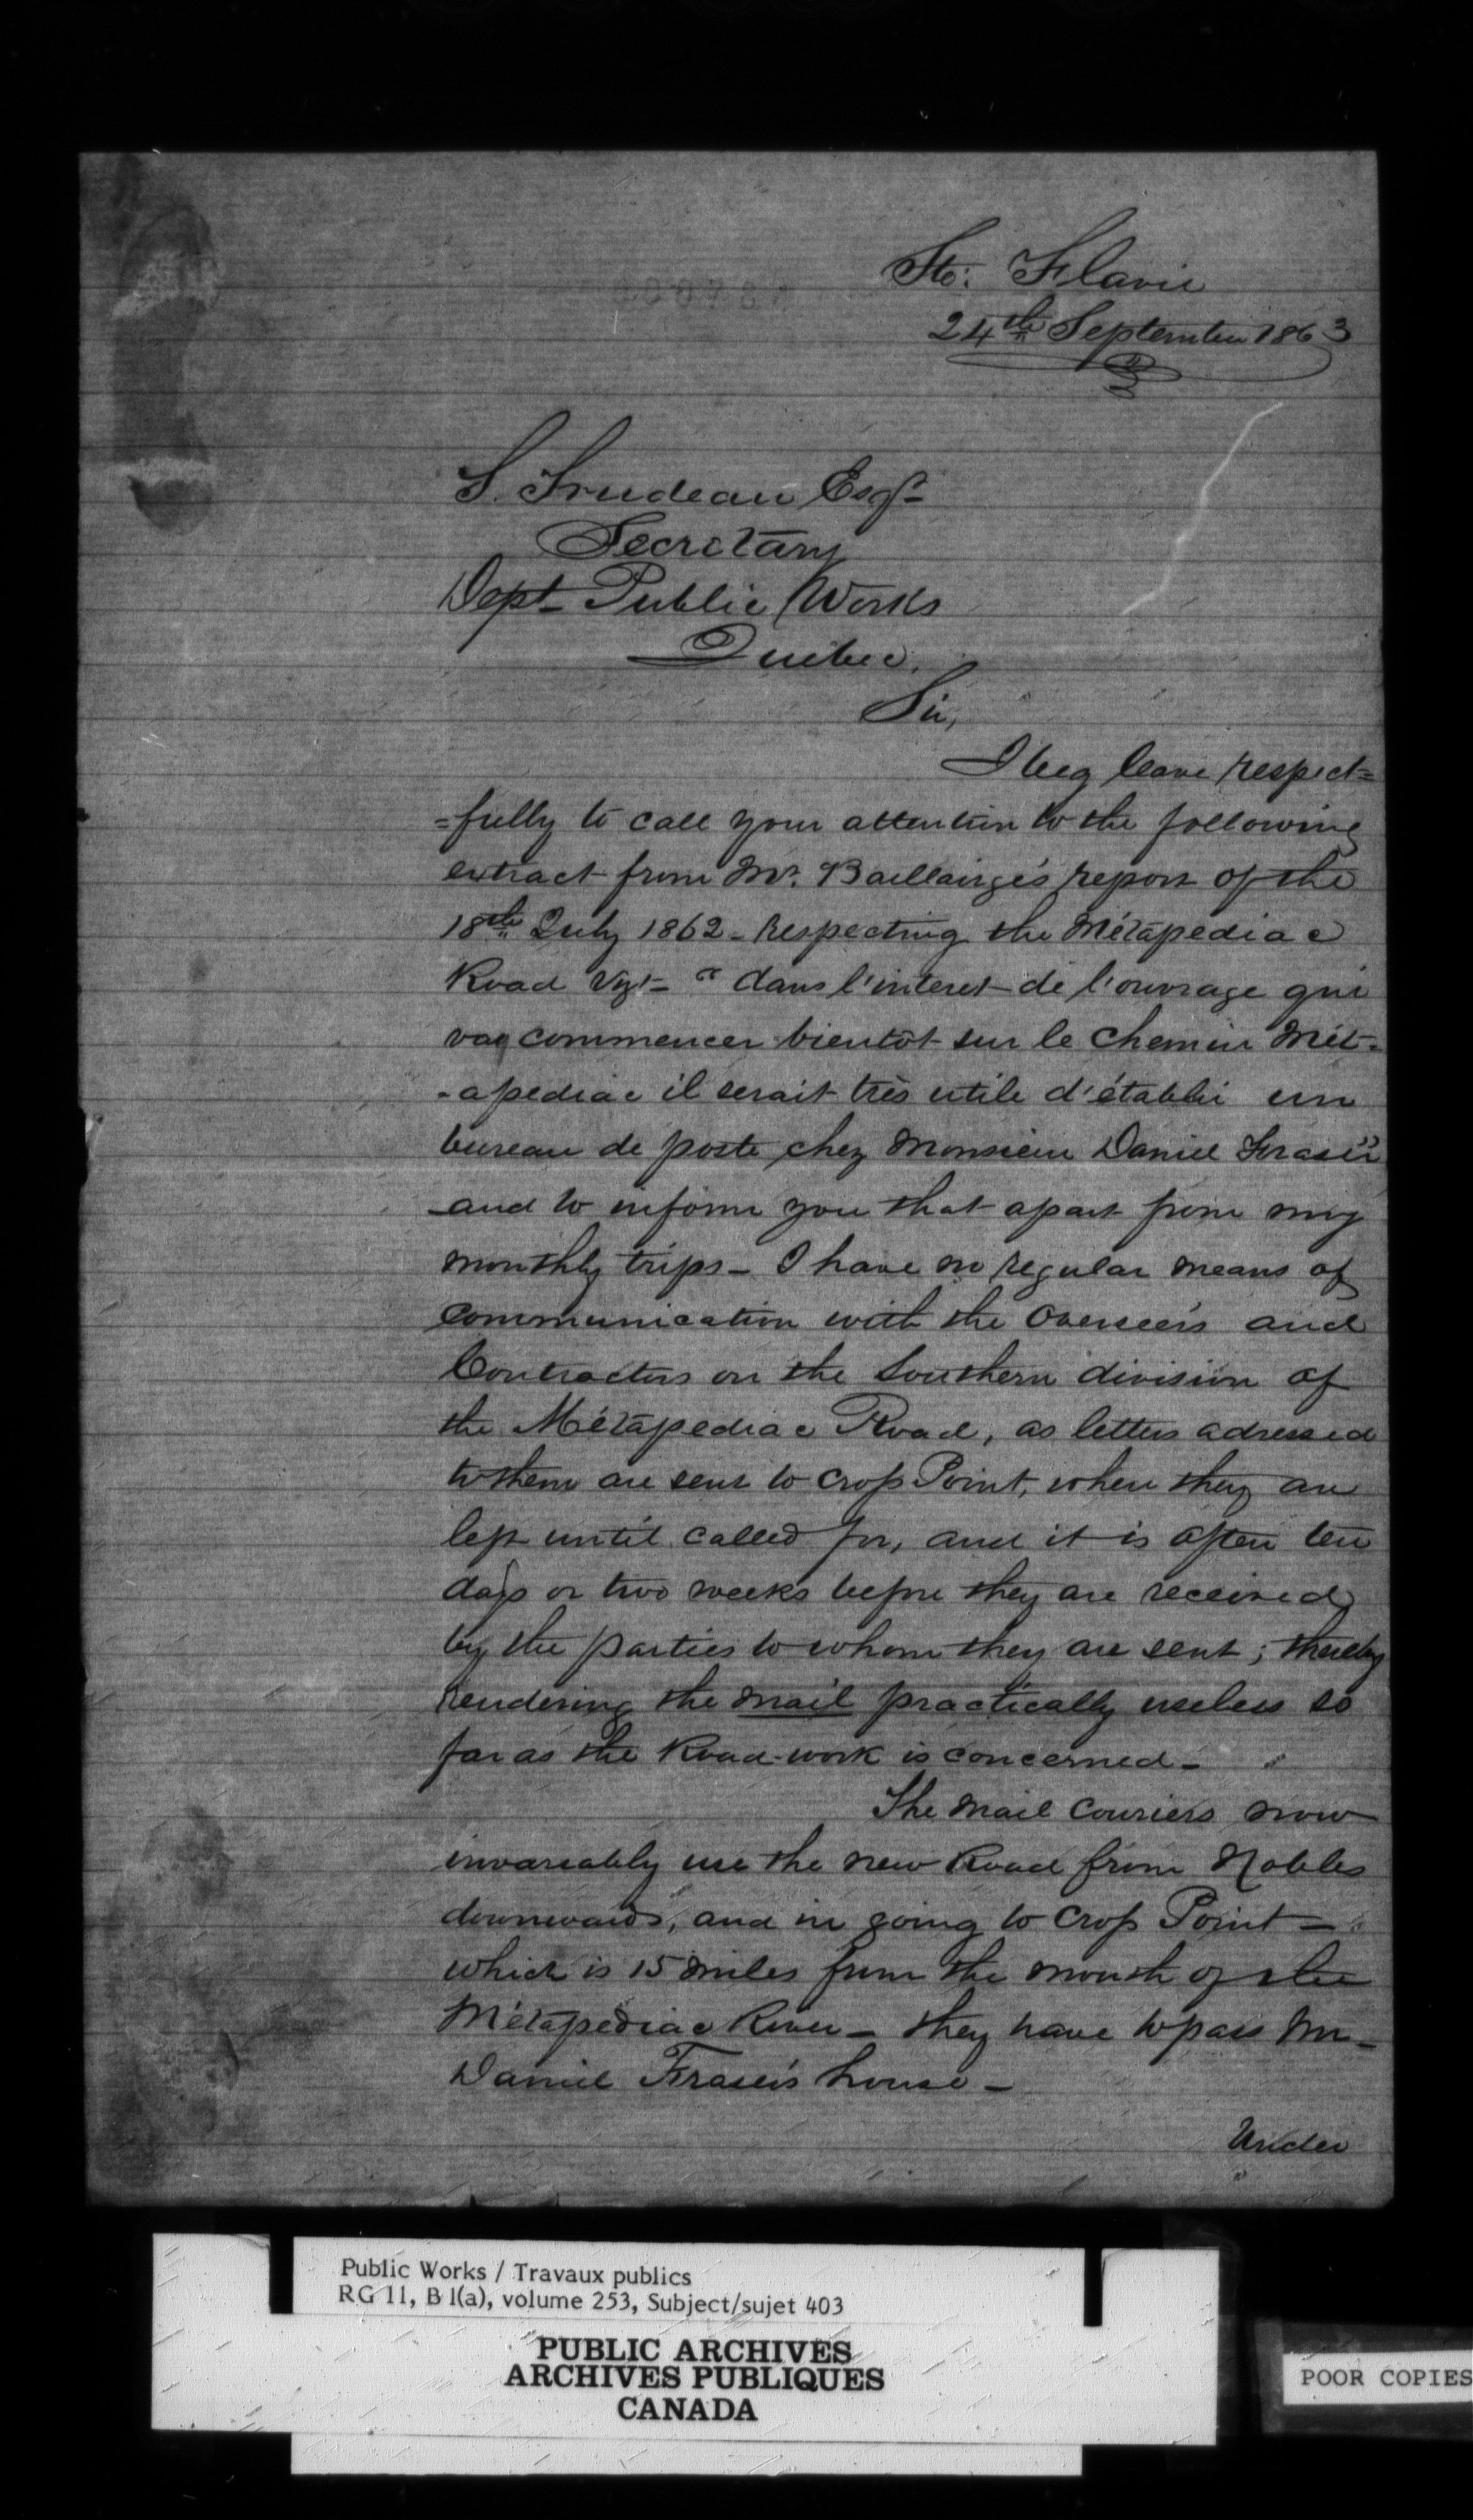 Ste: Flavie
24th September 1863
T. Trudeau Esqr
Secretary
Dept Public Works
Quebec.
Sir,
I beg leave respect=
=fully to call your attention to the following
extract from Mr. Baillairgé's report of the
18th July 1862 - respecting the Métapediac
Road vizt - " dans l'interet de l'ouvrage qui
va commencer bientôt sur le chemin Mét-
-apediac il serait très utile d'établir un
bureau de poste chez Monsieur Daniel Fraser"
and to inform you that apart from my
monthly trips - I have no regular means of
communication with the Overseers and
Contractors on the Southern division of
the Métapediac Road, as letters adressed
to them are sent to Crop Point, where they are
left until called for, and it is often ten
days or two weeks before they are received
by the parties to whom they are sent; thereby
rendering the mail practically useless so
far as the Road-work is concerned -
The mail couriers now
invareably use the new Road from Nobles
downwards, and in going to Crop Point -
which is 15 miles from the mouth of the
Métapediac River - they have to pass Mr -
Daniel Fraser's house -
Under
Public Works / Travaux publics
RG 11, B 1(a), volume 253, Subject/sujet 403
PUBLIC ARCHIVES
ARCHIVES PUBLIQUES
CANADA
POOR COPIES